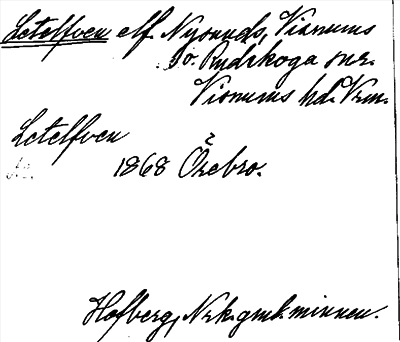 Letelfven elf Nysunds, Visnums
o. Rudskoga snr.
Visnums hd. Vrm.
Letelfven
1868 Örebro.
Hofberg, Nrks gml. minnen.